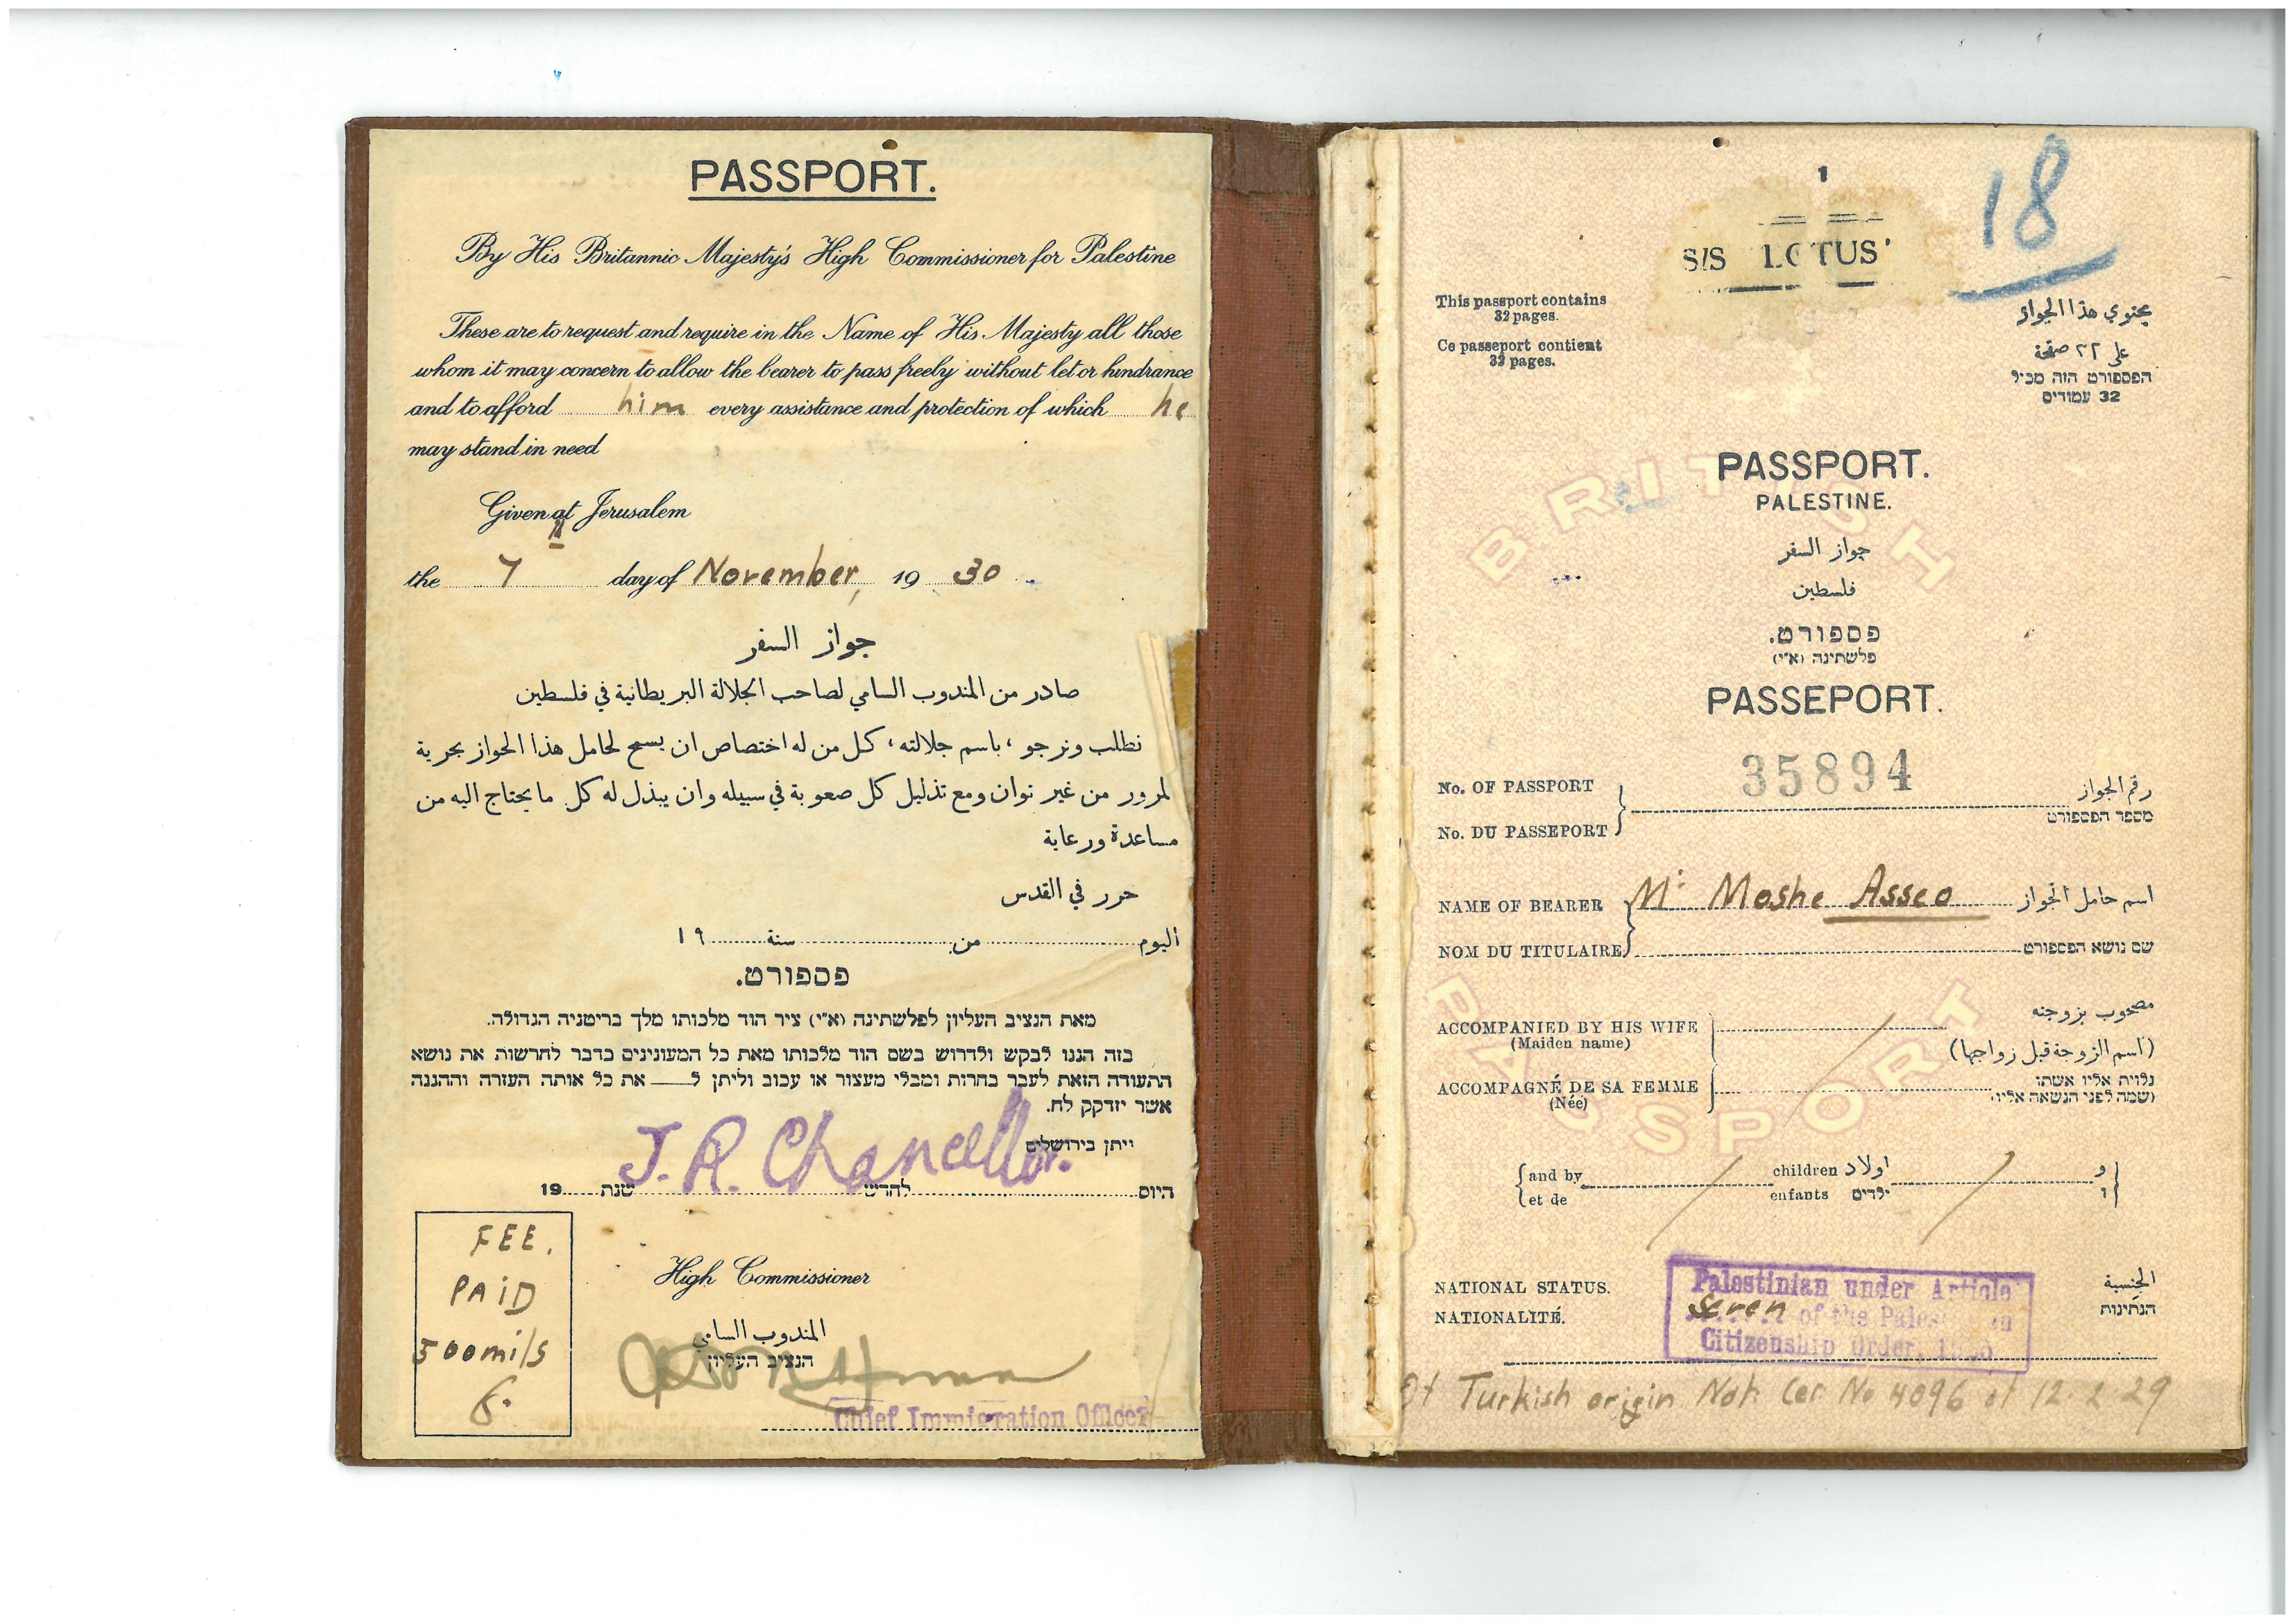 PASSPORT.
By His Britannic Majesty's High Commissioner for Palestine
These are to request and require in the Name of His Majesty all those
whom it may concern to allow the bearer to pass freely without let or hindrance
and to afford him every assistance and protection of which he
may stand in need
Given at Jerusalem
the 7 day of November, 1930
جواز السفر
صادر من المندوب السامي لصاحب الجلالة البريطانية في فلسطين
نطلب ونرجو ، باسم جلالته ، كل من له اختصاص ان يسمح لحامل هذا الجواز بحرية
لمرور من غير توان ومع تذليل كل صعوبة في سبيله وان يبذل له كل ما يحتاج اليه من
مساعدة ورعاية
حرر في القدس
اليوم من سنة ١٩
פספורט.
מאת הנציב העליון לפלשתינה (א״י) ציר הוד מלכותו מלך בריטניה הגדולה.
בזה הננו לבקש ולדרוש בשם הוד מלכותו מאת כל המעונינים בדבר להרשות את נושא
התעודה הזאת לעבר בחרות ומבלי מעצור או עכוב וליתן ל את כל אותה העזרה וההגנה
אשר יזדקק לה.
ויתן בירושלים
J. R. Chancellor.
היום לחדש שנת 19
FEE.
PAID
500 mils
High Commissioner
المندوب السامي
הנציב העליון
Chief Immigration Officer
1
18
S/S LOTUS'
This passport contains
32 pages.
Ce passeport contient
32 pages.
يحتوي هذا الجواز
على ٣٢ صفحة
הפספורט הזה מכיל
32 עמודים
BRITISH
PASSPORT
PASSPORT.
PALESTINE.
جواز السفر
فلسطين
פספורט.
פלשתינה (א״י)
PASSEPORT.
35894
No. OF PASSPORT رقم الجواز
No. DU PASSEPORT מספר הפספורט
NAME OF BEARER Mr. Moshe Asseo اسم حامل الجواز
NOM DU TITULAIRE שם נושא הפספורט
ACCOMPANIED BY HIS WIFE مصحوب بزوجته
(Maiden name) (اسم الزوجة قبل زواجها)
ACCOMPAGNÉ DE SA FEMME נלוית אליו אשתו
(Née) (שמה לפני הנשאה אליו)
and by children اولاد و
et de enfants ילדים ו
NATIONAL STATUS. الجنسية
NATIONALITÉ. הנתינות
Palestinian under Article
Seven of the
Citizenship Order,
Of Turkish origin Nat. Cer. No 4096 of 12.2.29